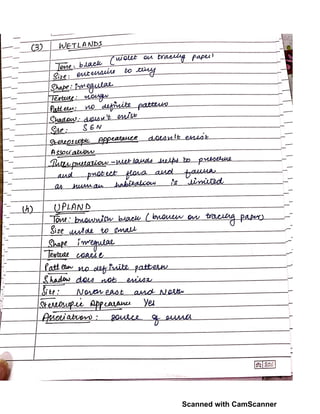 (3) WETLANDS
Tone: black (violet on tracing paper)
Size: extensive to tiny
Shape: Irregular
Texture: rough
Pattern: no definite pattern
Shadow: doesn't exist
Site: S E N
Stereoscopic appearance doesn't exist
Association
Interpretation - wet lands helps to preserve
and protect flora and fauna
as human habitation is limited
(4) UPLAND
Tone: brownish black (brown on tracing paper)
Size wide to small
Shape irregular
Texture coarse
Pattern no definite pattern
Shadow does not exist
Site: North east and North
Stereoscopic Appearance Yes
Association: source of
Scanned with CamScanner